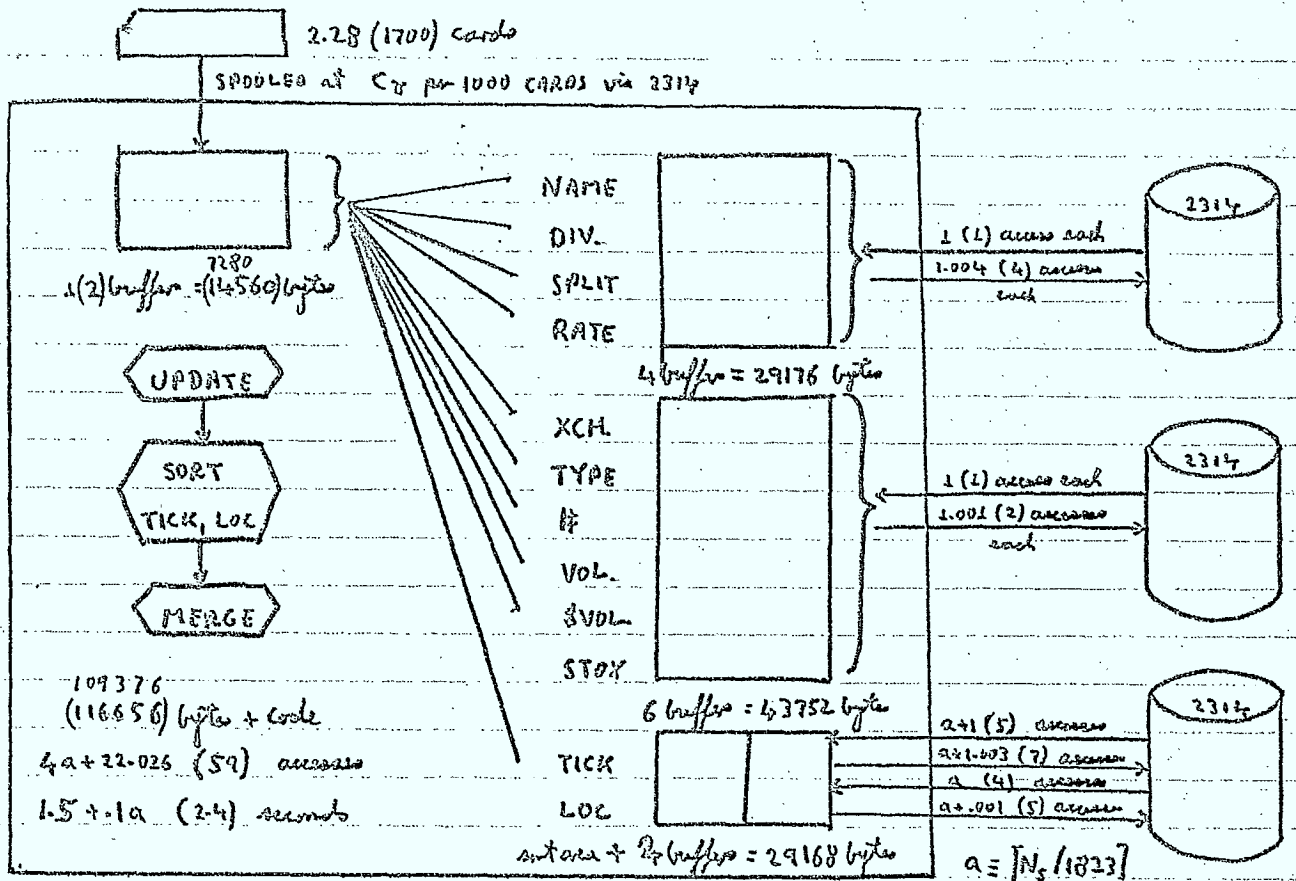 2.28 (1700) cards
SPOOLED at C per 1000 CARDS via 2314
7280
1(2) buffers = (14560) bytes
UPDATE
SORT
TICK, LOC
MERGE
109376
(116656) bytes + code
4a + 22.026 (59) accesses
1.5 + .1a (2.4) seconds
NAME
DIV.
SPLIT
RATE
4 buffers = 29176 bytes
XCH.
TYPE
#
VOL.
$VOL.
STOX
6 buffers = 43752 bytes
TICK
LOC
sort area + 2 buffers = 29168 bytes
2314
1 (1) access each
1.004 (4) accesses
each
2314
1 (1) access each
1.001 (2) accesses
each
2314
a+1 (5) accesses
a+1.003 (7) accesses
a (4) accesses
a+.001 (5) accesses
a ≡ [Ns/1823]